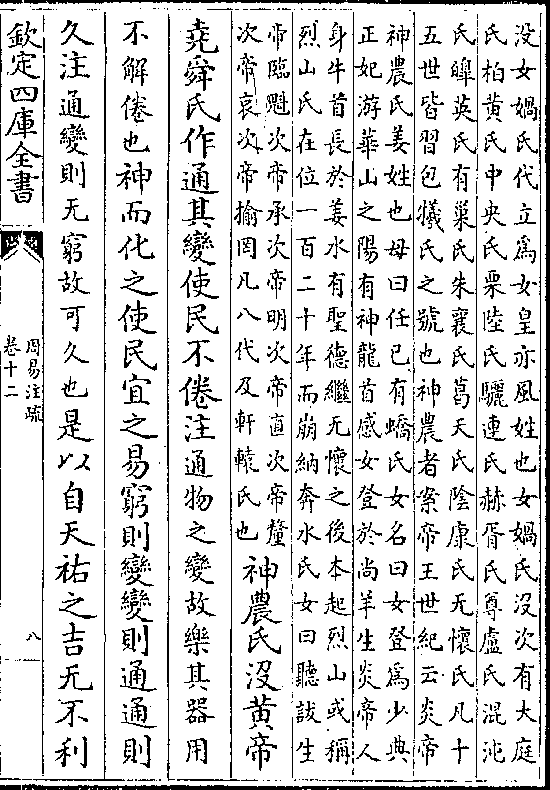 没女媧氏代立為女皇亦風姓也女媧氏沒次有大庭
氏柏黄氏中央氏栗陸氏驪連氏赫胥氏尊盧氏混沌
氏皥英氏有巢氏朱襄氏葛天氏陰康氏无懷氏凡十
五世皆習包犧氏之號也神農者案帝王世紀云炎帝
神農氏姜姓也母曰任已有蟜氏女名曰女登為少典
正妃游華山之陽有神龍首感女登於尚羊生炎帝人
身牛首長於姜水有聖德繼无懷之後本起烈山或稱
烈山氏在位一百二十年而崩納奔水氏女曰聽詙生
帝臨魁次帝承次帝明次帝直次帝釐
次帝哀次帝揄罔凡八代及軒轅氏也
神農氏沒黄帝
堯舜氏作通其變使民不倦注通物之變故樂其器用
不解倦也神而化之使民宜之易窮則變變則通通則
久注通變則无窮故可久也是以自天祐之吉无不利
欽定四庫全書
周易注疏
卷十二
八